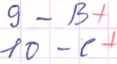 9 - B+
10 - C+